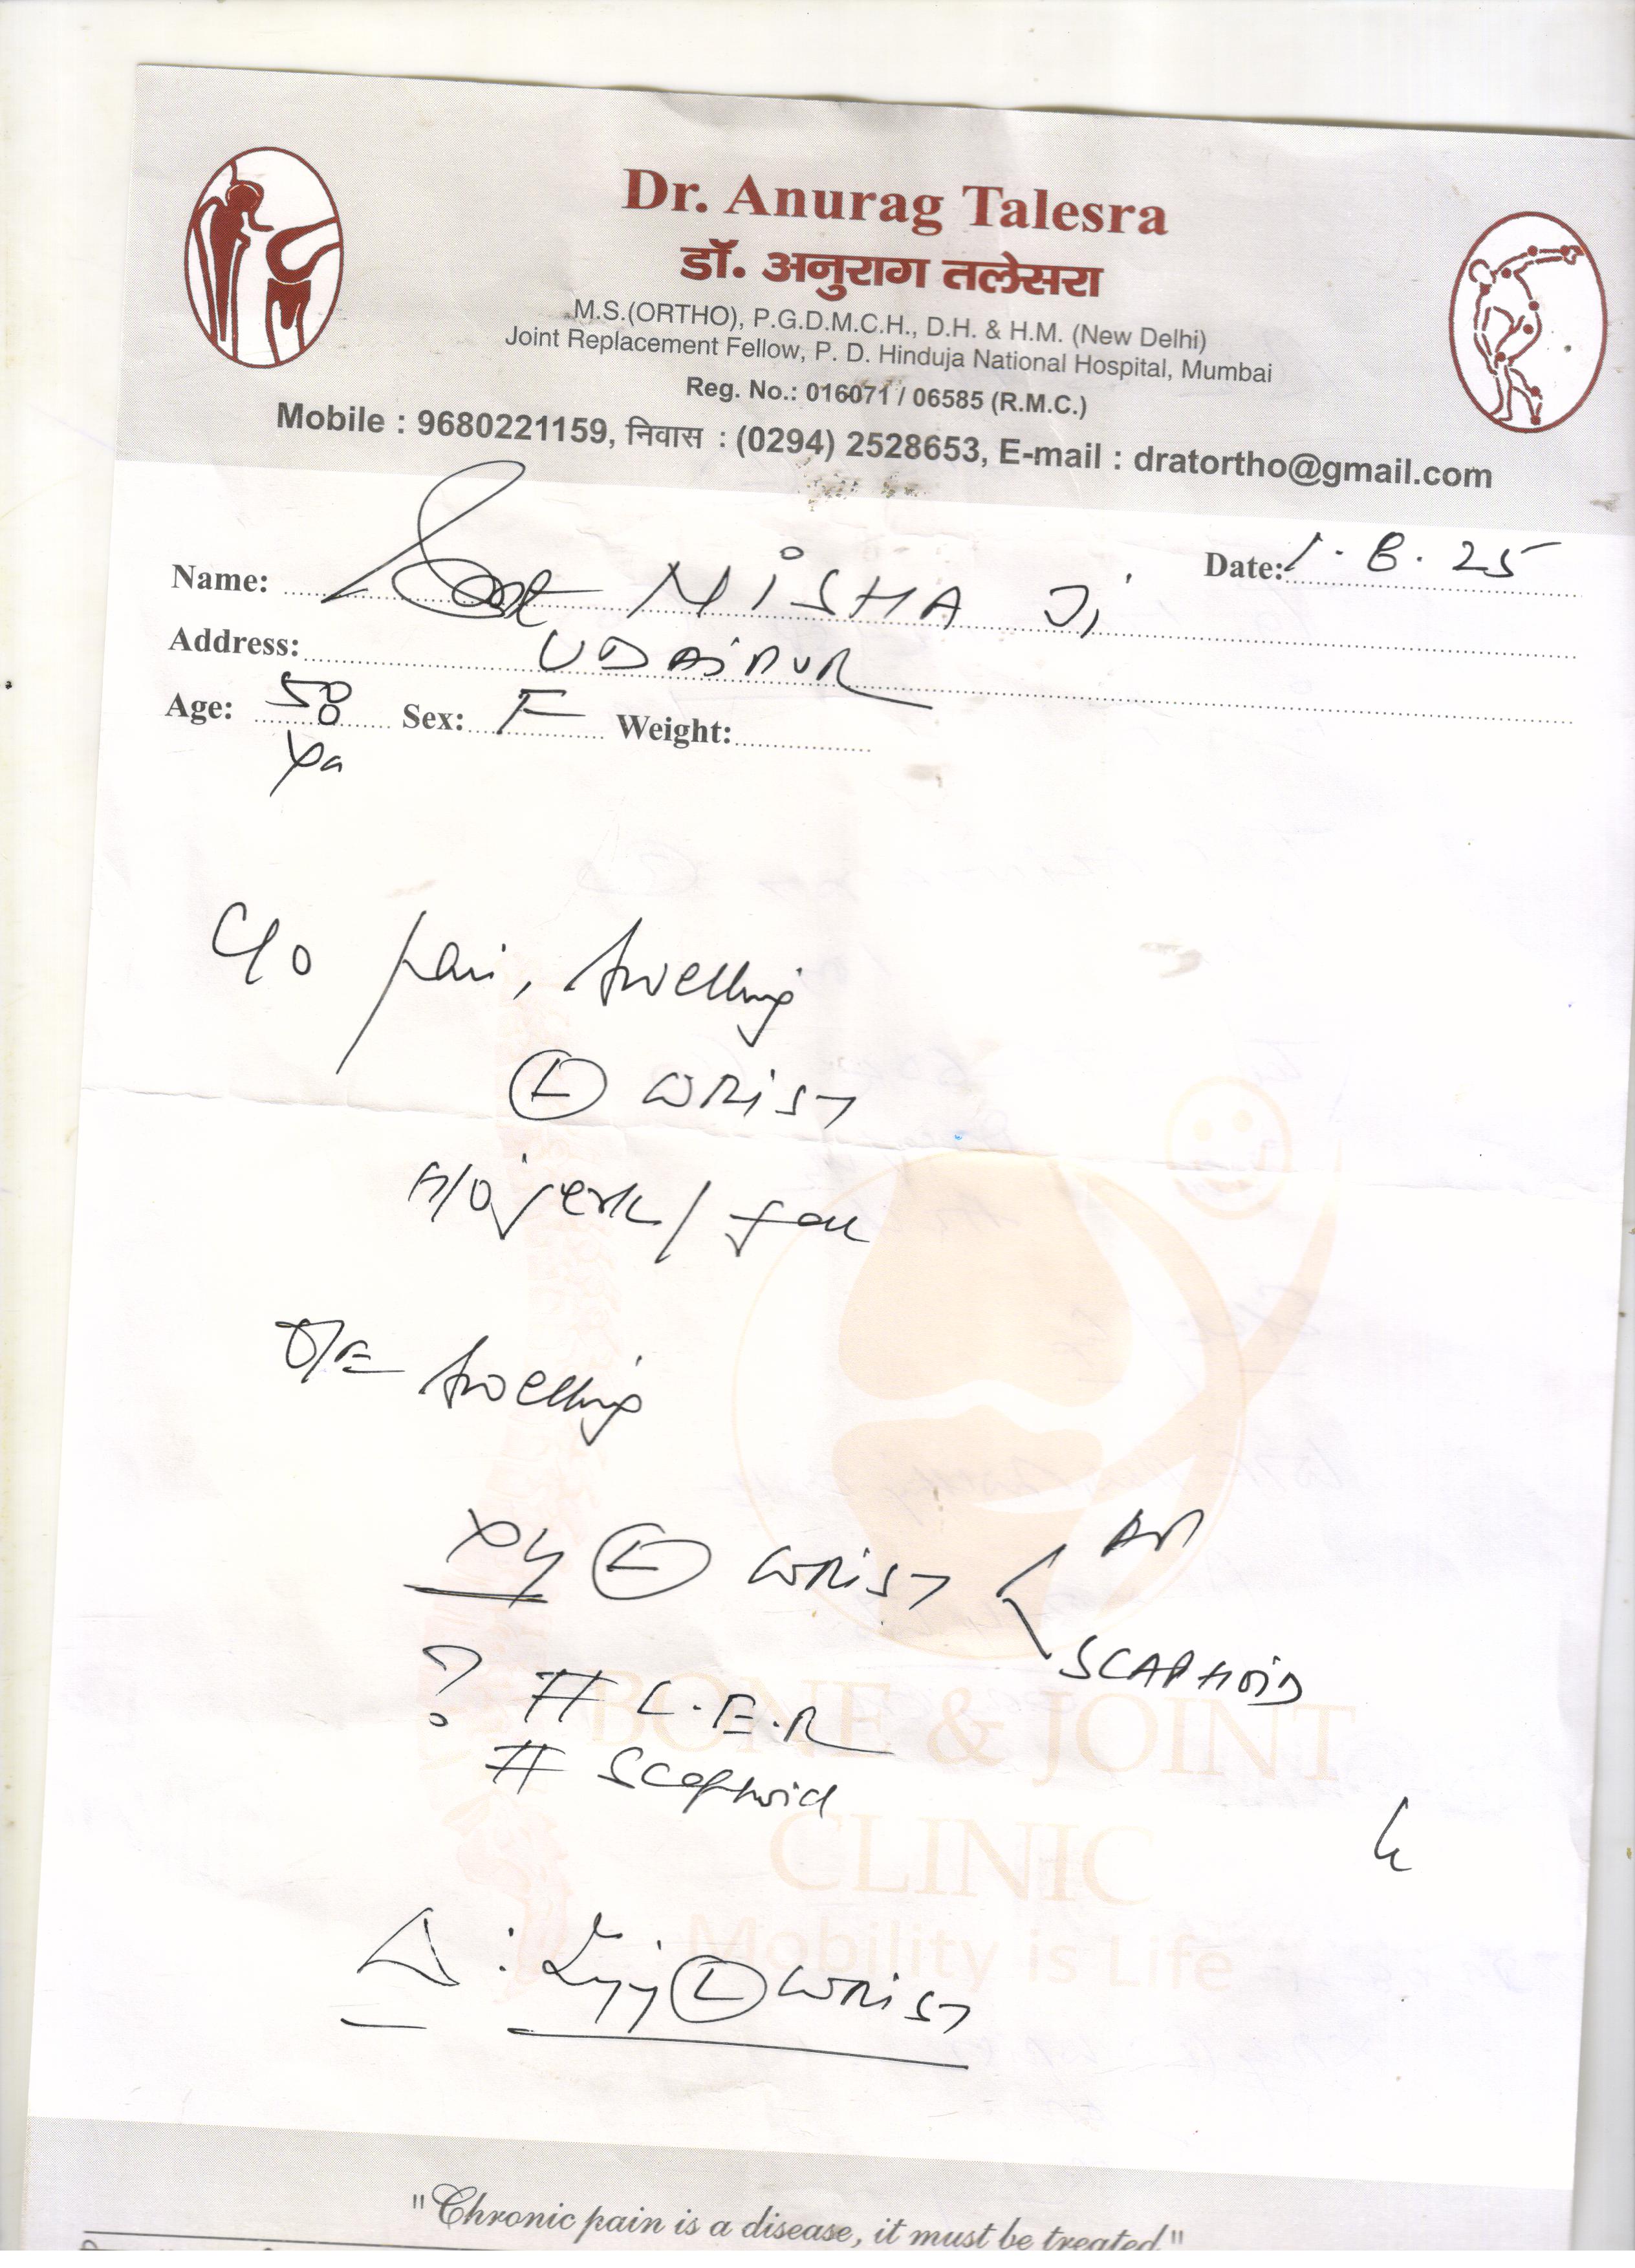 Dr. Anurag Talesra
डॉ. अनुराग तलेसरा
M.S.(ORTHO), P.G.D.M.C.H., D.H. & H.M. (New Delhi)
Joint Replacement Fellow, P. D. Hinduja National Hospital, Mumbai
Reg. No.: 016071 / 06585 (R.M.C.)
Mobile : 9680221159, निवास : (0294) 2528653, E-mail : dratortho@gmail.com
Date: 1.8.25
Name: NISHA Ji
Address: UDAIPUR
Age: 58 Sex: F Weight:
C/o pain, swelling
(L) WRIST
H/O jerk / fall
O/E swelling
(L) WRIST < AP
SCAPHOID
? # L.E.R
# Scaphoid
BONE & JOINT
CLINIC
Mobility is Life
Δ : Inj (L) WRIST
"Chronic pain is a disease, it must be treated"